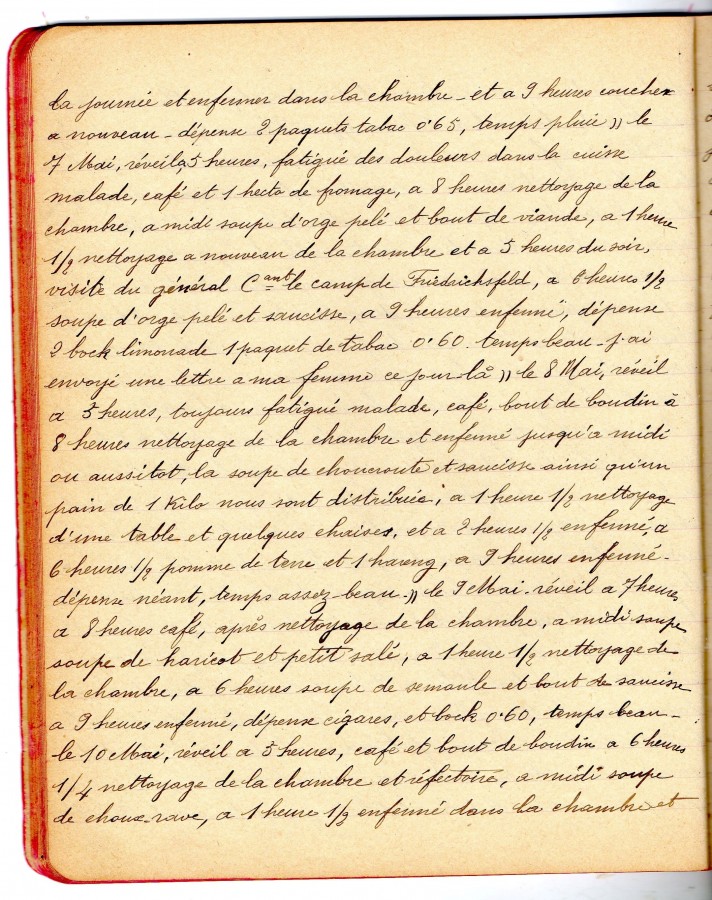 la journée et enfermer dans la chambre - et a 9 heures coucher
a nouveau - dépense 2 paquets tabac 0.65, temps pluie )) le
7 Mai, réveil a 5 heures, fatigué des douleurs dans la cuisse
malade, café et 1 hecto de fromage, a 8 heures nettoyage de la
chambre, a midi soupe d'orge pelé et bout de viande, a 1 heure
1/2 nettoyage a nouveau de la chambre et a 5 heures du soir,
visite du général Cant le camp de Friedrichsfeld, a 6 heures 1/2
soupe d'orge pelé et saucisse, a 9 heures enfermé, dépense
2 bock limonade 1 paquet de tabac 0.60. temps beau - j'ai
envoyé une lettre a ma femme ce jour-là )) le 8 Mai, réveil
a 5 heures, toujours fatigué malade, café, bout de boudin à
8 heures nettoyage de la chambre et enfermé jusqu'a midi
ou aussitot, la soupe de choucroute et saucisse ainsi qu'un
pain de 1 Kilo nous sont distribuée, a 1 heure 1/2 nettoyage
d'une table et quelques chaises, et a 2 heures 1/2 enfermé, a
6 heures 1/2 pomme de terre et 1 hareng, a 9 heures enfermé -
dépense néant, temps assez-beau - )) le 9 Mai - réveil a 7 heures
a 8 heures café, après nettoyage de la chambre, a midi soupe
soupe de haricot et petit salé, a 1 heure 1/2 nettoyage de
la chambre, a 6 heures soupe de semoule et bout de saucisse
a 9 heures enfermé, dépense cigares, et bock 0.60, temps beau -
le 10 Mai, réveil a 5 heures, café et bout de boudin a 6 heures
1/4 nettoyage de la chambre et réfectoire, a midi soupe
de choux-rave, a 1 heure 1/2 enfermé dans la chambre et